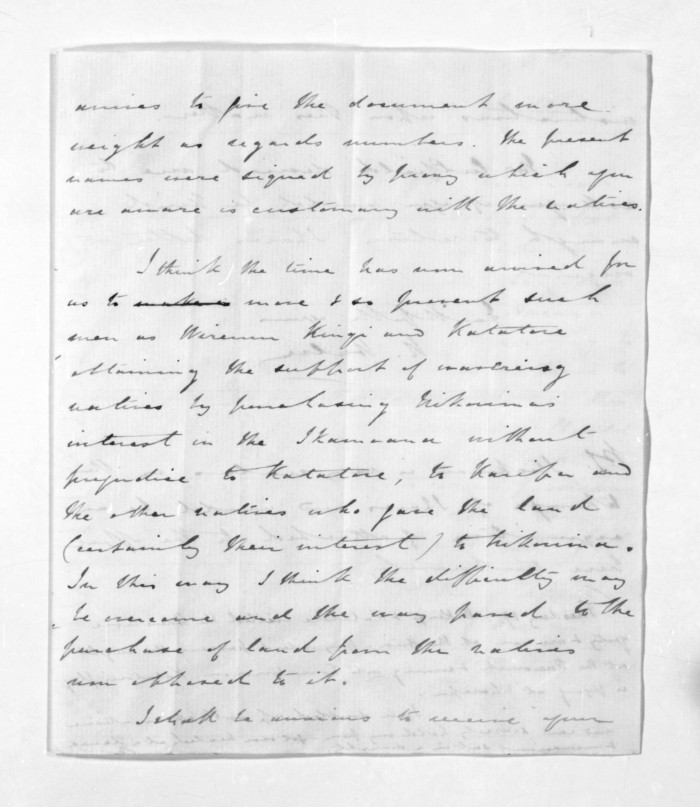 arrives to give the document more
weight as regards numbers. The present
names were signed by proxy which you
are aware is customary with the natives.
I think the time has now arrived for
us to make a move & so prevent such
men as Wiremu Kingi and Katatore
obtaining the support of wavering
natives by purchasing Nikorima's
interest in the Ikamoana without
prejudice to Katatore, to Karipa and
the other natives who gave the land
(certainly their interest) to Nikorima.
In this way I think the difficulty may
be overcome and the way paved to the
purchase of land from the natives
now opposed to it.
I shall be anxious to receive your